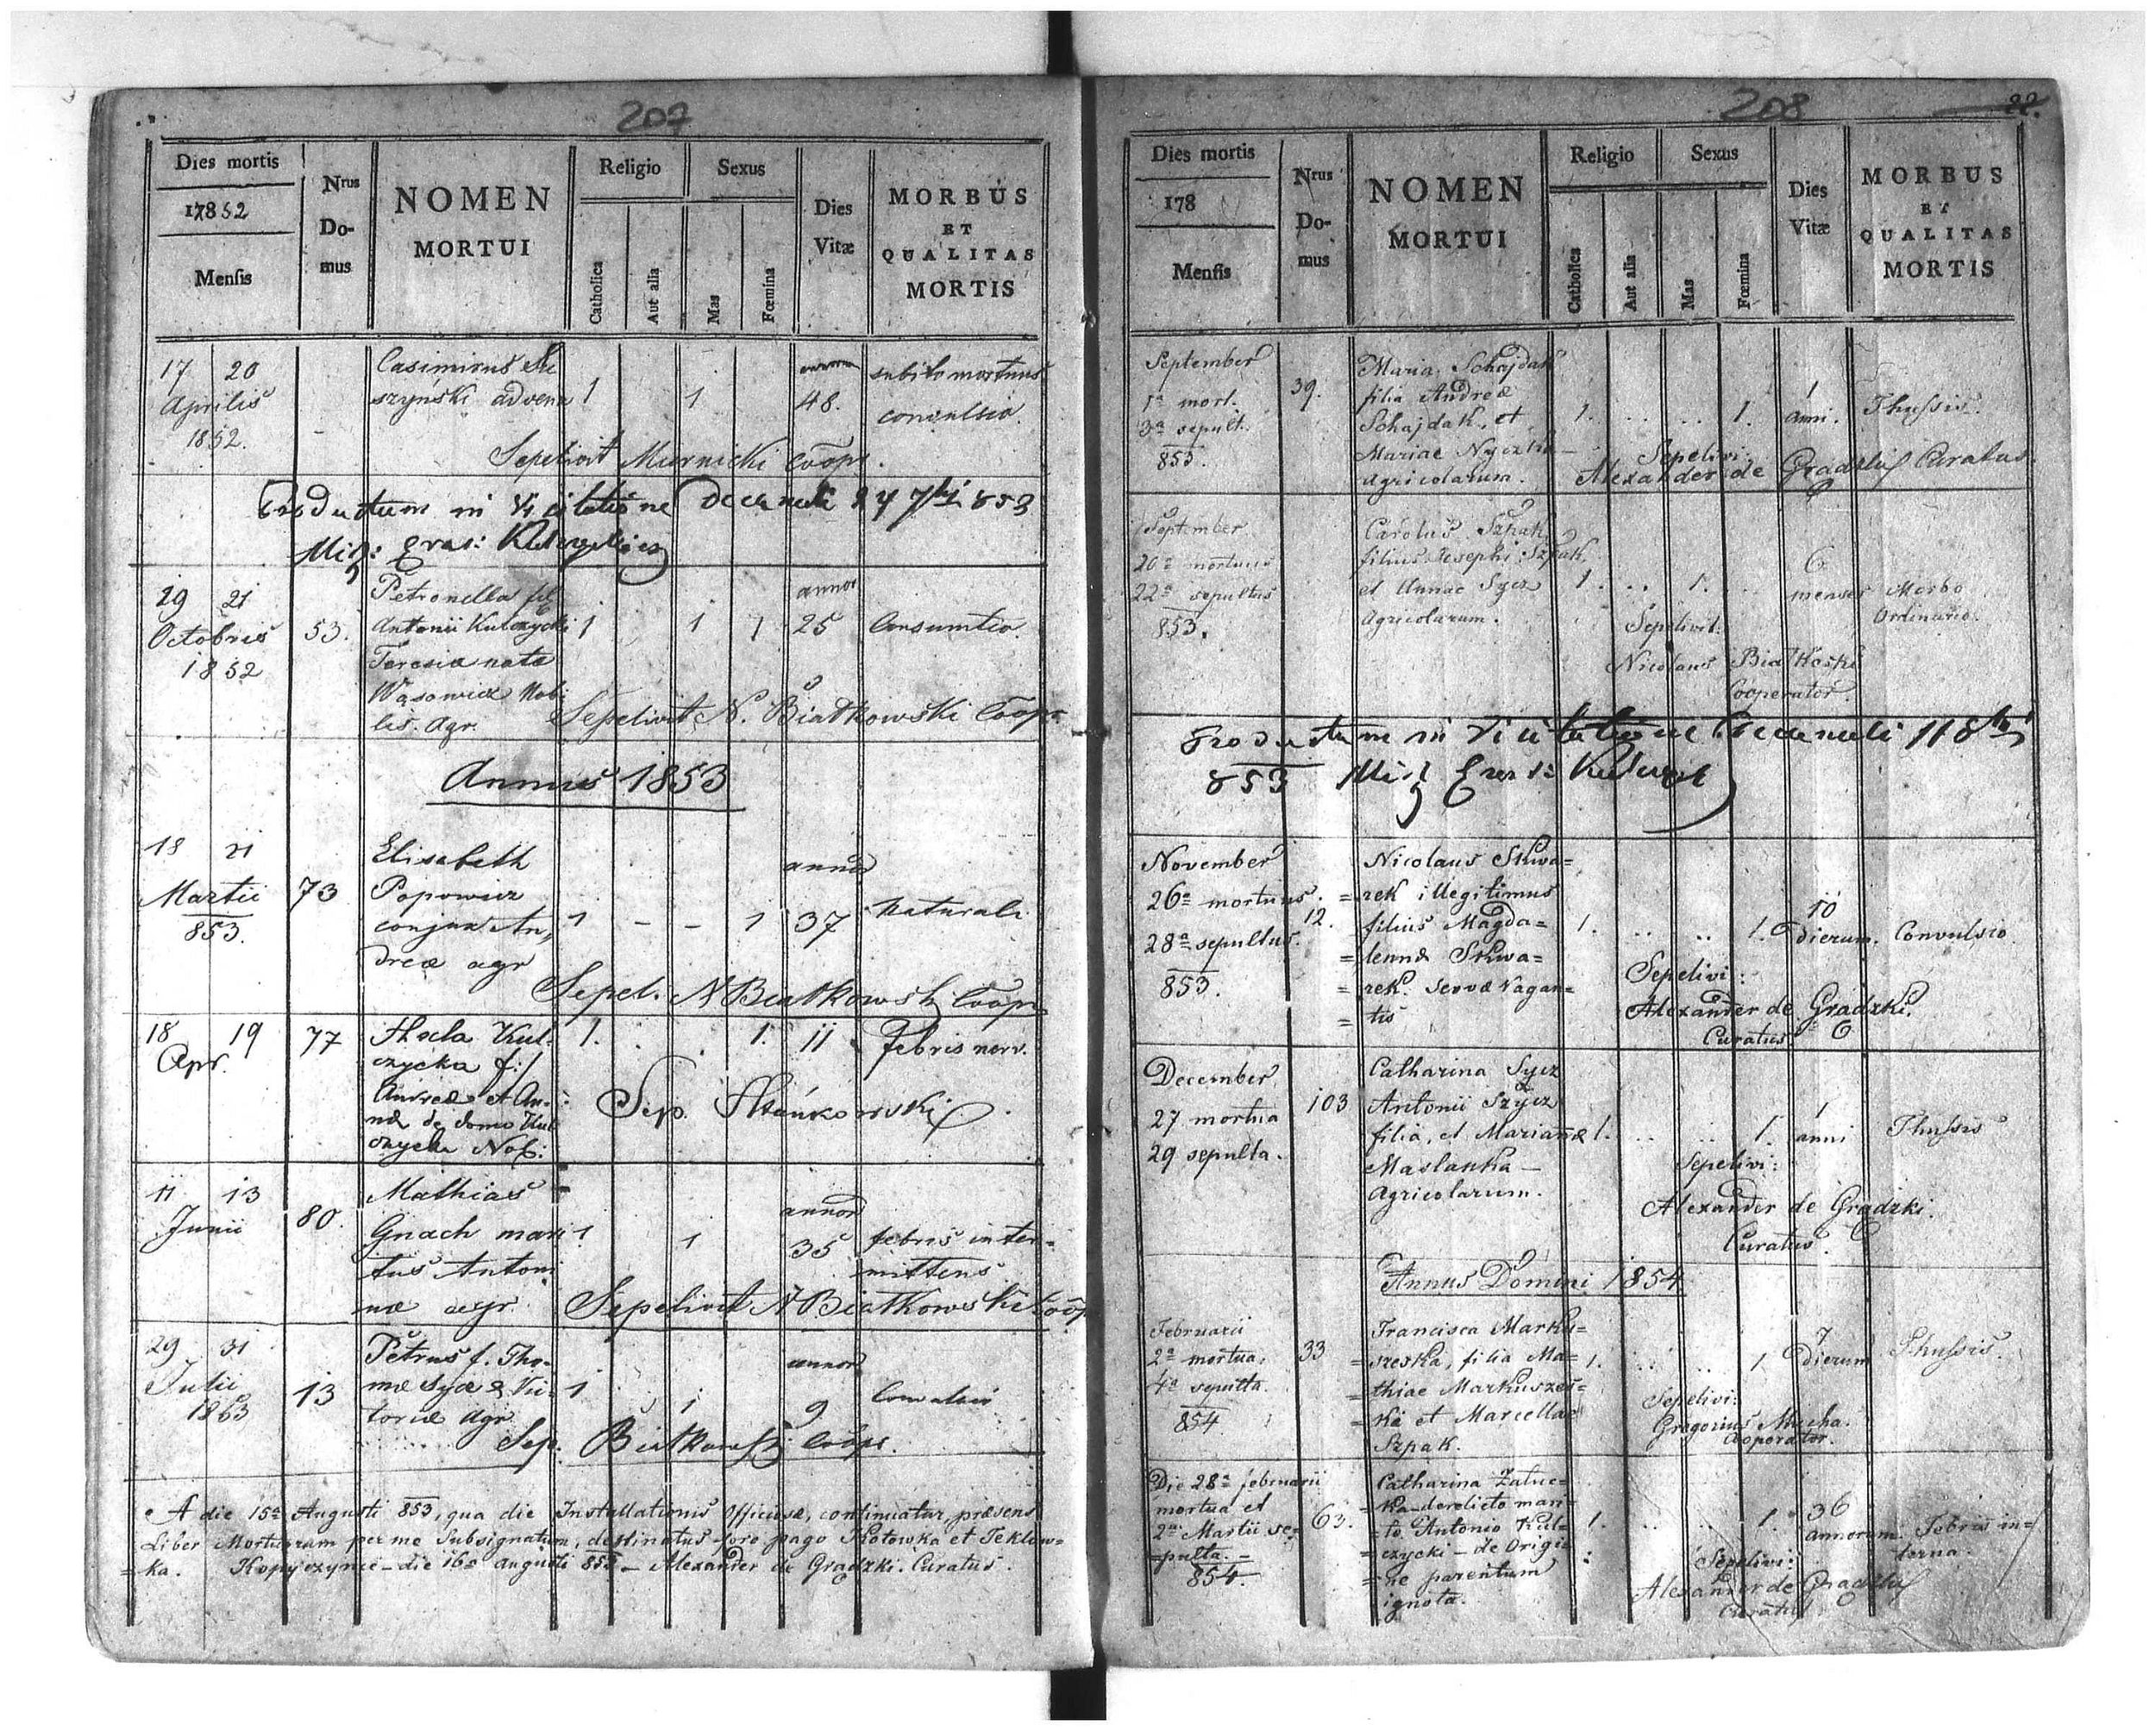 207
Dies mortis
17852
Mensis
Nrus
Do-
mus
NOMEN
MORTUI
Religio
Catholica
Aut alia
Sexus
Mas
Fœmina
Dies
Vitæ
MORBUS
ET
QUALITAS
MORTIS
17 20
Aprilis
1852.
Casimirus
szyński advena 1 1 48.
subito mortuus
convulsio.
Sepelivit Murnicki Coop.
Productum in Visitatione Decanali 853
29 21
Octobris
1852
53.
Petronella fil
Antonii Kulczycki 1 1 1
annor
25
Consumtio.
Teresia nata
Wąsowicz Nobi
lis. Agr.
Sepelivit N. Białkowski Coop.
Annus 1853
18 21
Martii
853.
73
Elisabeth
Popowicz
conjux An„
dreæ agr
1 - - 1
annor
37
Naturali
Sepel. N Białkowski Coop.
18 19
Apr.
77
Thecla Kul-
czycka f:
Andreæ et An-
næ de domo Kul
czycka Nob:
1. . . 1. 11
febris nerv.
Sep. Steńkowski
11 13
Junii
80.
Mathias
Gnach mari
tus Antoni
næ agr
1 1
annor
35
febris inter-
mittens
Sepelivit N Białkowski Coop
29 31
Julii
1853
13
Petrus f. Tho-
mæ Sycz & Vic
toriæ Agr
1 1
annor
9
Convulsio
Sep. Białkowski Coop.
A die 15ª Augusti 853, qua die Installationis Officiosæ, continuatur præsens
Liber Mortuorum per me Subsignatum, destinatus pro pago Kotowka et Teklow=
=ka. Kopyczynce - die 16ª augusti 853 - Alexander de Gradzki. Curatus.
208
22.
Dies mortis
178
Mensis
Nrus
Do-
mus
NOMEN
MORTUI
Religio
Catholica
Aut alia
Sexus
Mas
Fœmina
Dies
Vitæ
MORBUS
ET
QUALITAS
MORTIS
September
1ª mort.
3ª sepult.
853.
39.
Maria Schajdak
filia Andreæ
Schajdak, et
Mariae
Agricolarum.
1. .. .. 1.
1
anni.
Thussis.
Sepelivi:
Alexander de Gradzki Curatus
September
20ª mortuus
22ª sepultus
853.
Carolus Szpak
filius Josephi Szpak,
et Annae Sycz
Agricolarum.
1. .. 1. ..
6
menses
Morbo
Ordinario.
Sepelivit:
Nicolaus Białkoski
Cooperator
Productum in Visitatione Decanali
853
November
26ª mortuus.
28ª sepultus.
853.
12.
Nicolaus Skwa=
=rek illegitimus
filius Magda=
=lennæ Skwa=
=rek. servæ vagan=
=tis
1. .. .. 1.
10
dierum.
Convulsio
Sepelivi:
Alexander de Gradzki.
Curatus
December
27 mortua
29 sepulta.
103
Catharina Sycz
Antonii Szycz
filia, et Marianæ
Maslanka -
Agricolarum.
1. .. .. 1.
1
anni
Thussis
Sepelivi:
Alexander de Gradzki.
Curatus.
Annus Domini 1854
Februarii
2ª mortua,
4ª sepulta.
854.
33
Francisca Marku=
=szeska, filia Ma=
=thiae Markuszes=
=ka et Marcellae
Szpak.
1. .. .. 1
7
dierum
Thussis.
Sepelivi:
Gregorius Mucha.
Cooperator.
Die 28ª februarii
mortua et
2ª Martii se=
=pulta. -
854.
63.
Catharina Zaluc=
=ka derelicto mari=
=to Antonio Kul=
=czycki - de Origi=
=ne parentum
ignota.
1. .. .. 1.
36
annorum.
Febris in=
terna.
Sepelivi:
Alexander de Gradzki
Curatus